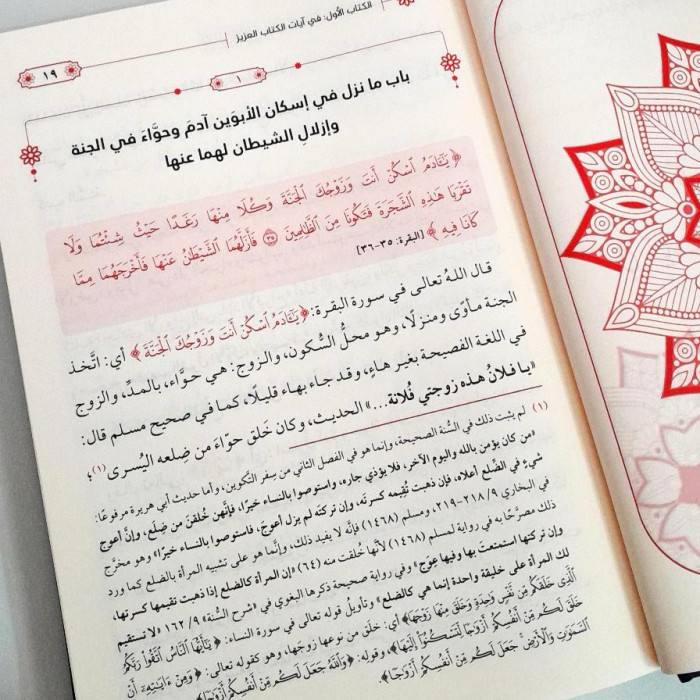 الكتاب الأول: في آيات الكتاب العزيز
١٩
١
باب ما نزل في إسكان الأبوَين آدمَ وحوَّاءَ في الجنة
وإزلالِ الشيطان لهما عنها
﴿ يَـٰٓـَٔادَمُ ٱسْكُنْ أَنتَ وَزَوْجُكَ ٱلْجَنَّةَ وَكُلَا مِنْهَا رَغَدًا حَيْثُ شِئْتُمَا وَلَا
تَقْرَبَا هَـٰذِهِ ٱلشَّجَرَةَ فَتَكُونَا مِنَ ٱلظَّـٰلِمِينَ ٣٥ فَأَزَلَّهُمَا ٱلشَّيْطَـٰنُ عَنْهَا فَأَخْرَجَهُمَا مِمَّا
كَانَا فِيهِ ﴾ [البقرة: ٣٥-٣٦]
قال اللهُ تعالى في سورة البقرة: ﴿يَـٰٓـَٔادَمُ ٱسْكُنْ أَنتَ وَزَوْجُكَ ٱلْجَنَّةَ﴾ أي: اتَّخذ
الجنة مأوًى ومنزلًا، وهو محلُّ السُّكون، والزوج: هي حوَّاء، بالمدِّ، والزوج
في اللغة الفصيحة بغير هاءٍ، وقد جاء بهاء قليلًا، كما في صحيح مسلم قال:
«يا فلانُ هذه زوجتي فُلانة...» الحديث، وكان خَلق حوّاءَ من ضِلعه اليُسرى(١)؛
(١) لم يثبت ذلك في السُّنة الصحيحة، وإنما هو في الفصل الثاني من سِفر التكوين، وأما حديث أبي هريرة مرفوعًا:
«من كان يؤمن بالله واليوم الآخر، فلا يؤذي جاره، واستوصوا بالنساء خيرًا، فإنَّهن خُلقنَ من ضِلَع، وإنَّ أعوج
شيءٍ في الضِّلع أعلاه، فإن ذهبت تُقيمه كسرتَه، وإن تركتَه لم يزل أعوجَ، فاستوصوا بالنساء خيرًا» وهو مخرَّج
في البخاري ٢١٨/٩-٢١٩، ومسلم (١٤٦٨) فإنَّه لا يفيد ذلك، وإنَّما هو على تشبيه المرأة بالضلع كما ورد
ذلك مصرَّحًا به في رواية لمسلم (١٤٦٨) لأنها خلقت منه (٦٤) «إن المرأة كالضلع إذا ذهبت تقيمها كسرتها،
وإن تركتها استمتعتَ بها وفيها عِوَج» وفي رواية صحيحة ذكرها البغوي في «شرح السُّنة» ١٦٢/٩ «لا تستقيم
لك المرأة على خليقة واحدة إنما هي كالضلع» وتأويلُ قوله تعالى في سورة النساء: ﴿يَـٰٓأَيُّهَا ٱلنَّاسُ ٱتَّقُوا۟ رَبَّكُمُ
ٱلَّذِى خَلَقَكُم مِّن نَّفْسٍ وَٰحِدَةٍ وَخَلَقَ مِنْهَا زَوْجَهَا﴾ أي: خلق من نوعها زوجَها، وهو كقوله تعالى: ﴿وَمِنْ ءَايَـٰتِهِۦٓ أَنْ
خَلَقَ لَكُم مِّنْ أَنفُسِكُمْ أَزْوَٰجًا لِّتَسْكُنُوٓا۟ إِلَيْهَا﴾، وقوله: ﴿وَٱللَّهُ جَعَلَ لَكُم مِّنْ أَنفُسِكُمْ أَزْوَٰجًا﴾
ٱلسَّمَـٰوَٰتِ وَٱلْأَرْضِ جَعَلَ لَكُم مِّنْ أَنفُسِكُمْ أَزْوَٰجًا﴾.